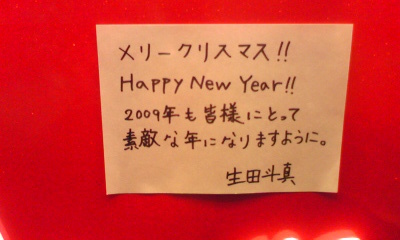 メリークリスマス!!
HAPPY NEW YEAR!!
2009年も皆様にとって
素敵な年になりますように。
生田斗真